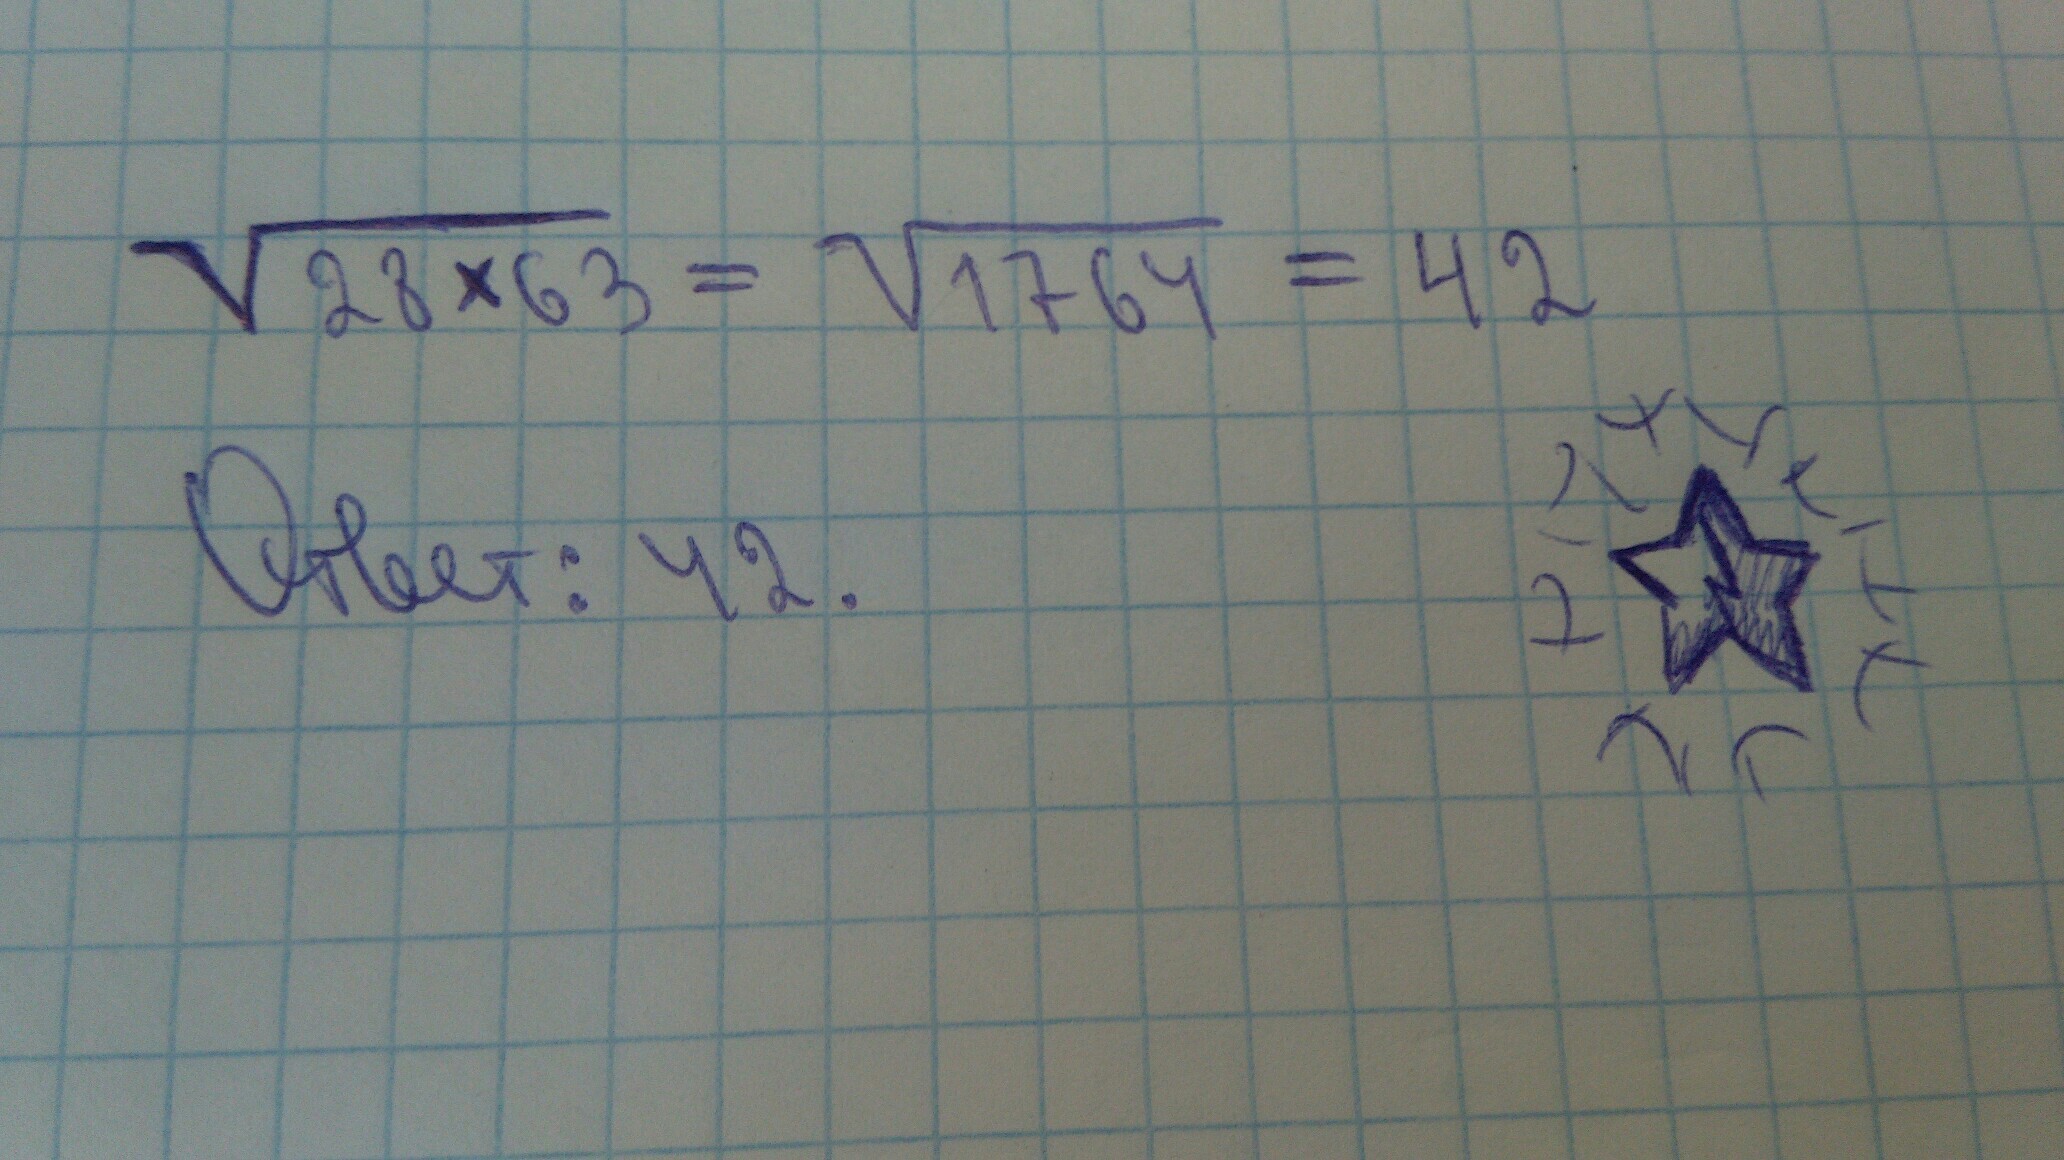 √28×63 = √1764 = 42
Ответ: 42.